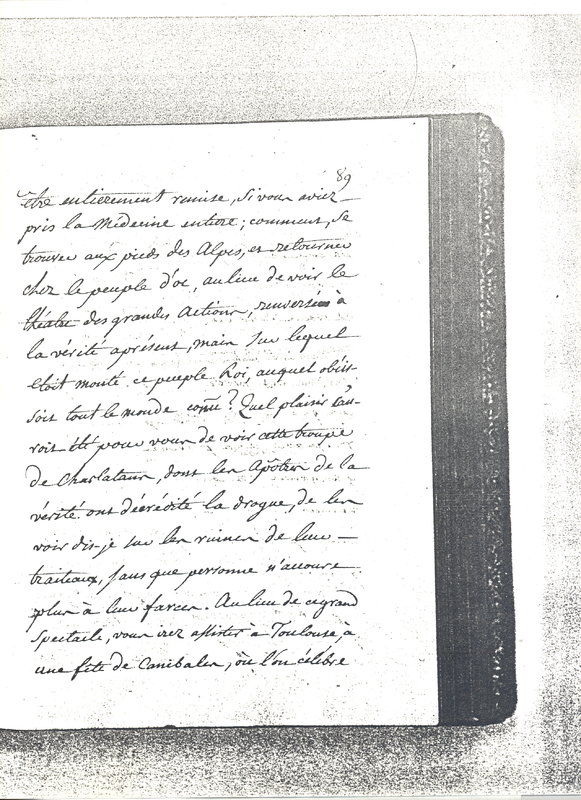 89
être entierement remise, si vous aviez
pris la Médecine entiere; comment, se
trouver aux pieds des Alpes, et retourner
chez le peuple d'oc, au lieu de voir le
théatre des grandes Actions, renversées à
la vérité aprésent, mais sur lequel
etoit monté ce peuple Roi, auquel obéis-
soit tout le monde connu? Quel plaisir c'au-
roit été pour vous de voir cette troupe
de Charlatans, dont les Apôtres de la
vérité ont décrédité la drogue, de les
voir dis-je sur les ruines de leurs
traiteaux, sans que personne n'accoure
plus à leur farces. Au lieu de ce grand
Spectacle, vous irez assister à Toulouse, à
une fête de Canibales, où l'on célébre